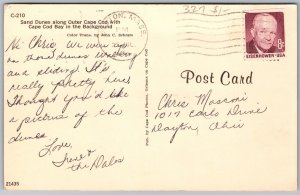 C-210
Sand Dunes along Outer Cape Cod with
Cape Cod Bay in the Background
Color Trans. by John C. Schram
Hi Chris, we were up
on those dunes running
and sliding! It's
really pretty here.
Thought you'd like
a picture of the
dunes.
Love,
Irene &
the Dales
21435
TON, MASS.
337 51
EISENHOWER · USA
8c
Post Card
Chris Masroni
1017 Carlo Drive
Dayton, Ohio